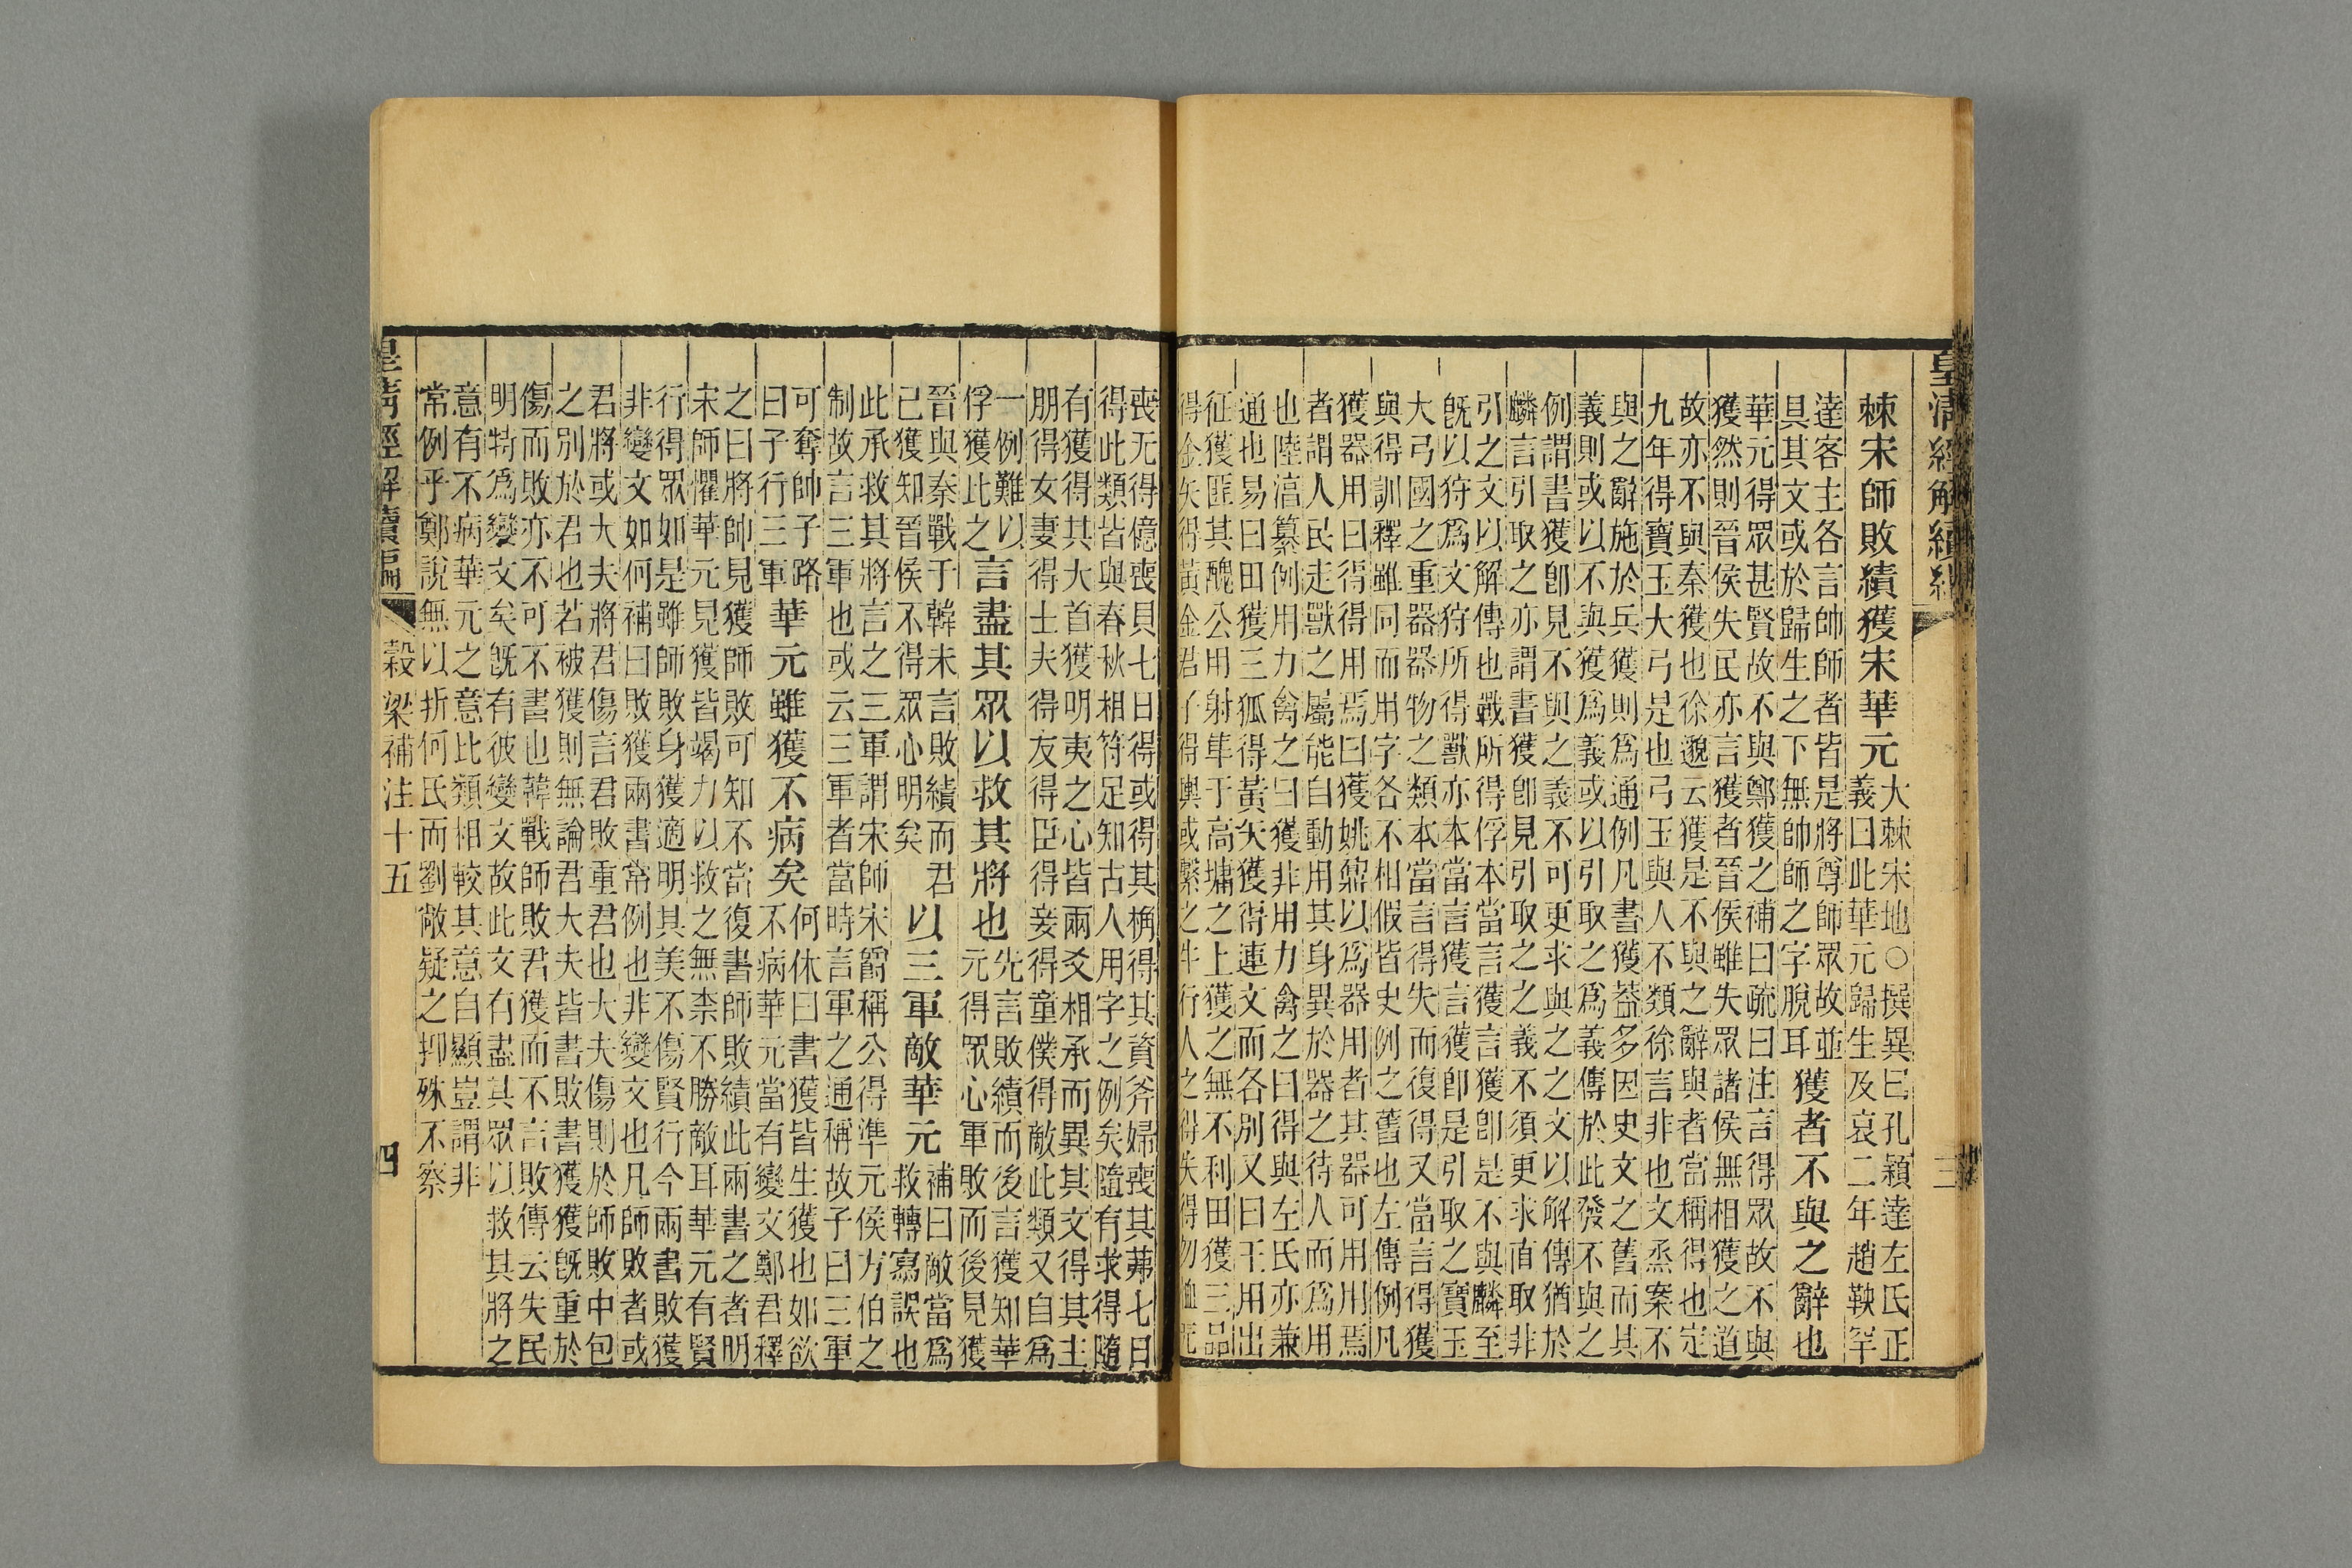 皇清經解續編
三
棘宋師敗績獲宋華元
大棘宋地○撰異曰孔穎達左氏正
義曰此華元歸生及哀二年趙鞅罕
達客主各言帥師者皆是將尊師眾故並
具其文或於歸生之下無帥師之字脫耳
獲者不與之辭也
華元得眾甚賢故不與鄭獲之補曰疏曰注言得眾故不與
獲然則晉侯失民亦言獲者晉侯雖失眾諸侯無相獲之道
故亦不與秦獲也徐邈云獲是不與之辭與者當稱得也定
九年得寶玉大弓是也弓玉與人不類徐言非也文烝案不
與之辭施於兵獲則爲通例凡書獲葢多因史文之舊而其
義則或以不與獲爲義或以引取之爲義傳於此發不與之
例謂書獲卽見不與之義不可更求與之之文以解傳猶於
麟言引取之亦謂書獲卽見引取之之義不須更求直取非
引之文以解傳也戰所得俘本當言獲言獲卽是不與麟至
旣以狩爲文狩所得獸亦本當言獲言獲卽是引取之寶玉
大弓國之重器器物之類本當言得失而復得又當言得獲
與得訓釋雖同而用字各不相假皆史例之舊也左傳例凡
獲器用曰得得用焉曰獲姚鼐以爲器用者其器可用用焉
者謂人民走獸之屬能自動用其身異於器之待人而爲用
也陸湻纂例用力禽之曰獲非用力禽之曰得與左氏亦兼
通也易曰田獲三狐得黃矢獲得連文而各別又曰王用出
征獲匪其醜公用射隼于高墉之上獲之無不利田獲三品
得金矢得黃金君子得輿或繫之牛行人之得失得勿恤旡
喪无得億喪貝七日得或得其桷得其資斧婦喪其茀七日
得此類皆與春秋相符足知古人用字之例矣隨有求得隨
有獲得其大首獲明夷之心皆兩爻相承而異其文得其主
朋得女妻得士夫得友得臣得妾得童僕得敵此類又自爲
一例難以
俘獲此之
言盡其眾以救其將也
先言敗績而後言獲知華
元得眾心軍敗而後見獲
晉與秦戰于韓未言敗績而君
已獲知晉侯不得眾心明矣
以三軍敵華元
補曰敵當爲
救轉寫誤也
此承救其將言之三軍謂宋師宋爵稱公得準元侯方伯之
制故言三軍也或云三軍者當時言軍之通稱故子曰三軍
可奪帥子路
曰子行三軍
華元雖獲不病矣
何休曰書獲皆生獲也如欲
不病華元當有變文鄭君釋
之曰將帥見獲師敗可知不當復書師敗績此兩書之者明
宋師懼華元見獲皆竭力以救之無柰不勝敵耳華元有賢
行得眾如是雖師敗身獲適明其美不傷賢行今兩書敗獲
非變文如何補曰敗獲兩書常例也非變文也凡師敗者或
君將或大夫將君傷言君敗重君也大夫傷則於師敗中包
之別於君也若被獲則無論君大夫皆書敗書獲獲旣重於
傷而敗亦不可不書也韓戰師敗君獲而不言敗傳云失民
明特爲變文矣旣有彼變文故此文有盡其眾以救其將之
意有不病華元之意此類相較其意自顯豈謂非
常例乎鄭說無以折何氏而劉敞疑之抑殊不察
皇清經解續編
穀梁補注十五
四